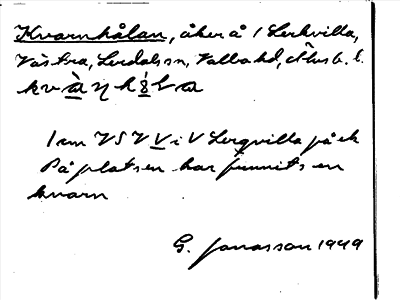 Kvarnhålan, åker å 1 Lerkvilla,
Västra, Lerdals sn, Valbo hd, Älvsb. l.
1 cm VSV V i V Lerqvilla på ek
På platsen har funnits en
kvarn
G. Jonasson 1949